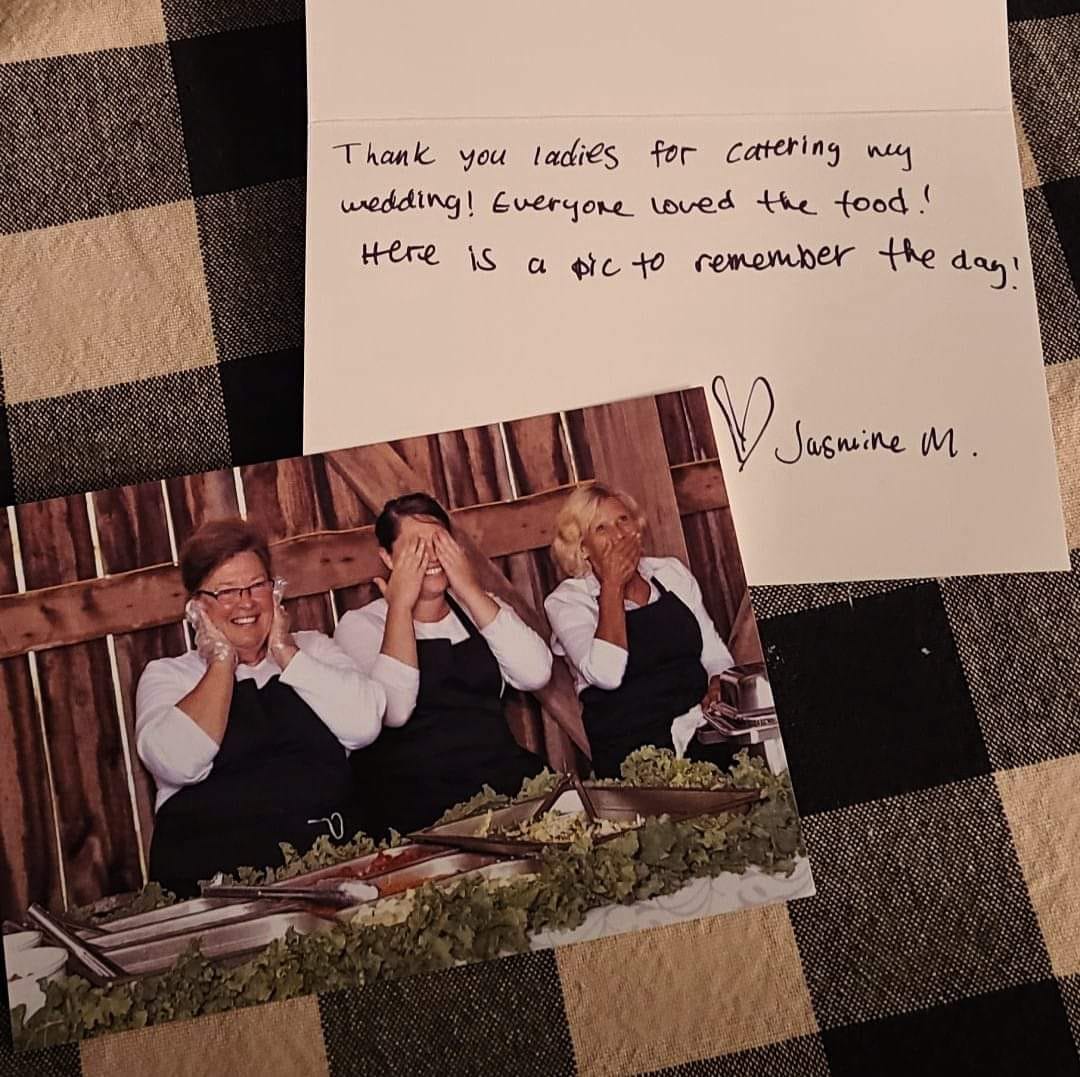 Thank you ladies for catering my
wedding! Everyone loved the food!
Here is a pic to remember the day!
Jasmine M.